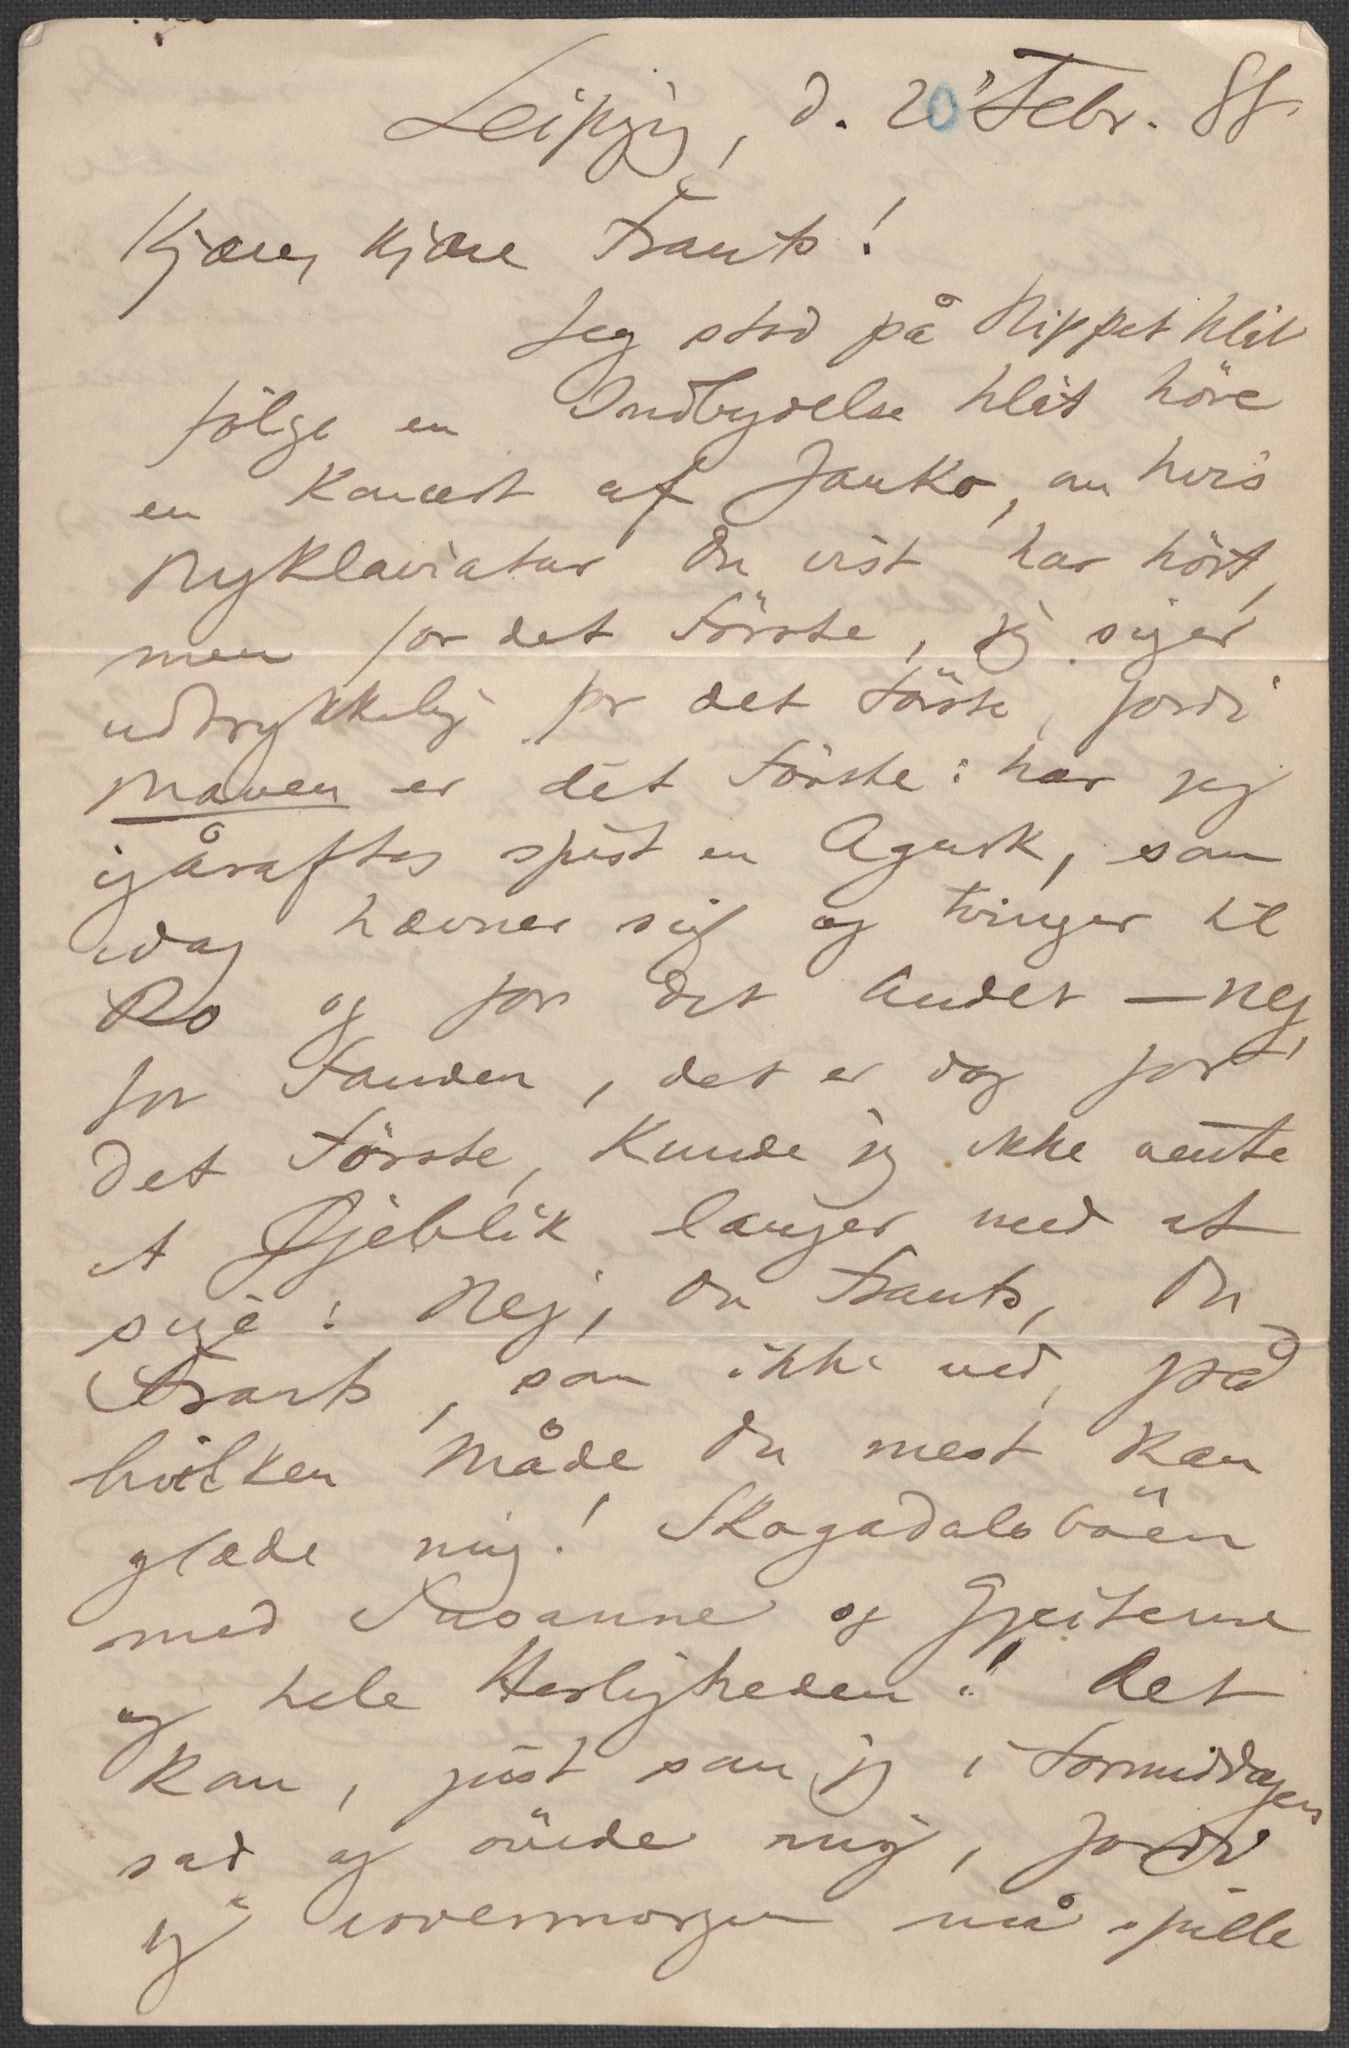 Leipzig, d. 20' Febr. 88
Kjære, kjære Frants!
Jeg stod på Nippet til at
følge en Indbydelse til at höre
en Koncert af Janko, om hvis
Nyklaviatur Du vist har hört,
men for det Förste, jeg siger
udtrykkelig for det Förste, fordi
Maven er det Förste: har jeg
igåraftes spist en Agurk, som
idag hævner sig og tvinger til
Ro og for det Andet – nej
for Fanden, det er dog for
det Förste, kunde jeg ikke vente
et Øjeblik længer med at
sige: Nej, Du Frants, Du
Frants, som ikke ved, på
hvilken Måde Du mest kan
glæde mig! Skogadalsböen
med Susanne og Gjeiterne
og hele Herligheden!! Det
kan, just som jeg i Formiddages
sad og övede mig, fordi
jeg iovermorgen må spille